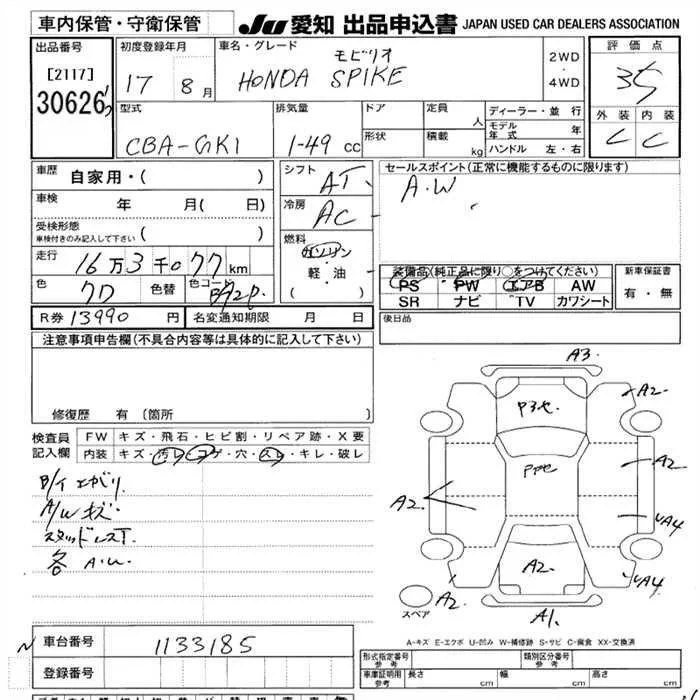 車内保管・守衛保管
JU 愛知 出品申込書 JAPAN USED CAR DEALERS ASSOCIATION
出品番号
[2117]
30626
初度登録年月
17 8月
車名・グレード
モビリオ
HONDA SPIKE
2WD
・
4WD
評価点
3.5
外装 内装
C C
型式
CBA-GK1
排気量
1-49 cc
ドア
形状
定員
人
積載
kg
ディーラー・並行
モデル年式 年
ハンドル 左・右
車歴 自家用・( )
車検 年 月( 日)
受検形態
車検付きのみ記入して下さい ( )
走行 16万3千077km
色 クロ 色替 色コード B92P
シフト AT
冷房 AC
燃料
ガソリン
軽・油
( )
セールスポイント(正常に機能するものに限ります)
A.W
装備品(純正品に限り○をつけてください)
PS PW エアB AW
SR ナビ TV カワシート
新車保証書
有・無
R券 13990 円 名変通知期限 月 日
後日品
注意事項申告欄(不具合内容等は具体的に記入して下さい)
修復歴 有 〔箇所
検査員記入欄
FW キズ・飛石・ヒビ割・リペア跡・X要
内装 キズ・汚レ・コゲ・穴・スレ・キレ・破レ
A/Wキズ
スタッドレスT
各 A.U.
A3
A2
A2
A2
A4
A4
A2
A2
A1
スペア
A-キズ E-エクボ U-凹み W-補修跡 S-サビ C-腐食 XX-交換済
車台番号 1133185
登録番号
形式指定番号 参考
類別区分番号 参考
車庫証明用 参考 長さ cm 幅 cm 高さ cm